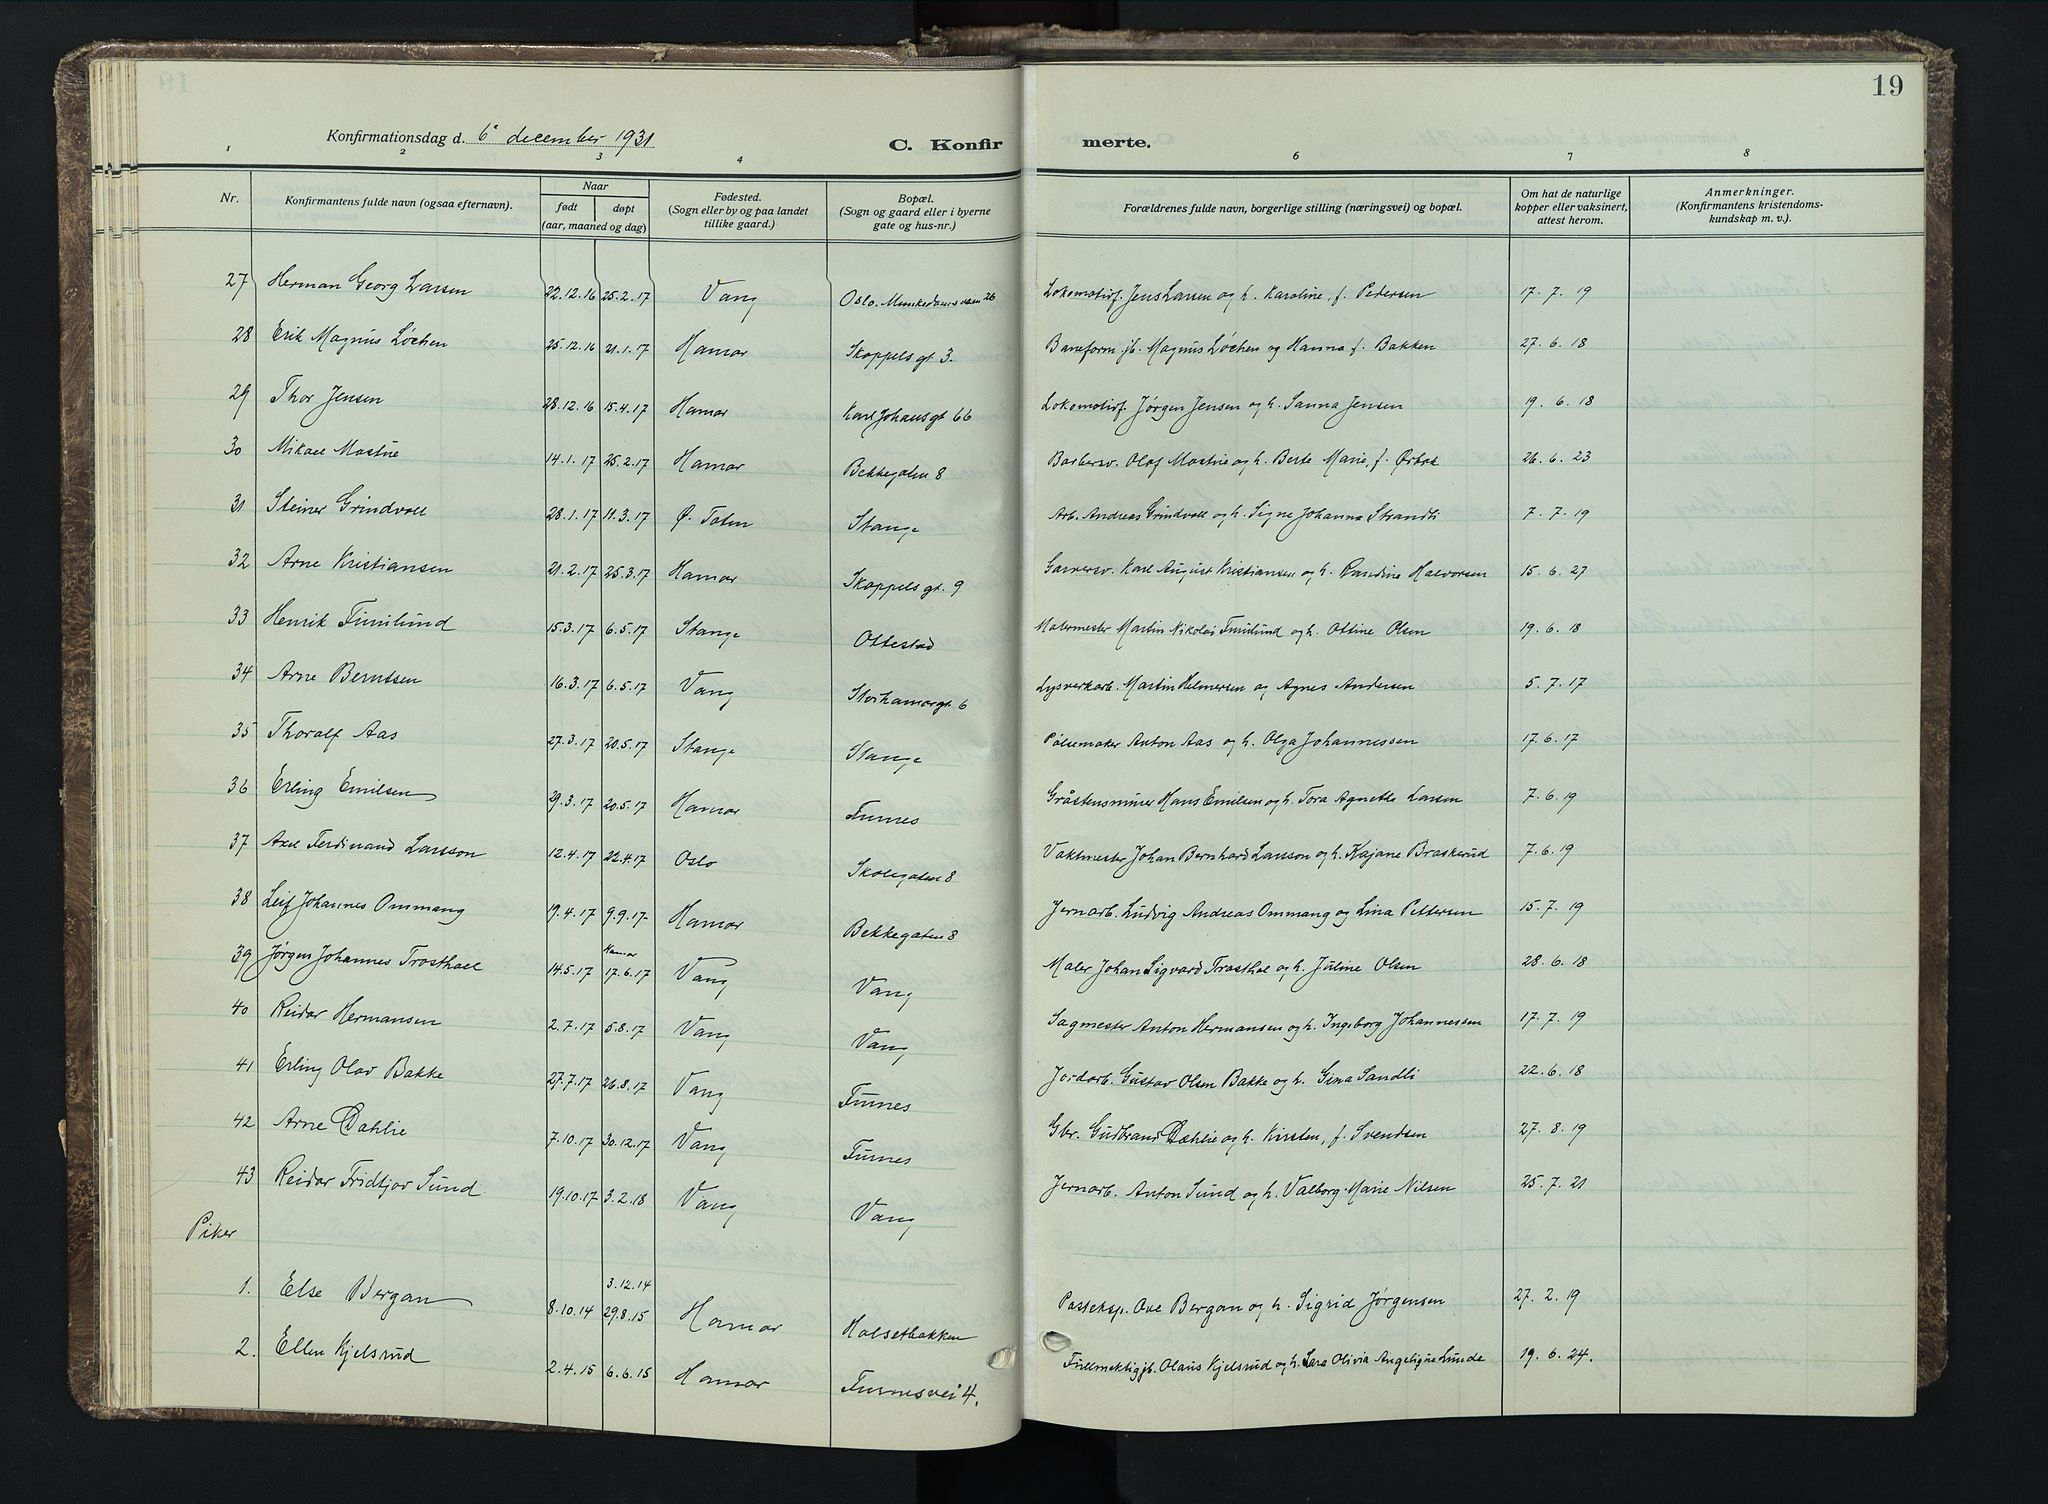 19
Konfirmationsdag d. 6' december 1931
C. Konfirmerte.
1 2 3 4 6 7 8
Nr. Konfirmantens fulde navn (ogsaa efternavn). Naar født døpt (aar, maaned og dag) Fødested. (Sogn eller by og paa landet tillike gaard.) Bopæl. (Sogn og gaard eller i byerne gate og hus-nr.) Forældrenes fulde navn, borgerlige stilling (næringsvei) og bopæl. Om hat de naturlige kopper eller vaksinert, attest herom. Anmerkninger. (Konfirmantens kristendomskundskap m. v.).
27 Herman Georg Larsen 22.12.16 25.2.17 Vang Oslo. Munkedamsveien 26 Lokomotivf. Jens Larsen og h. Karoline, f. Pedersen 17. 7. 19
28 Erik Magnus Løchen 25.12.16 21.1.17 Hamar Skappels gt 3. Baneform.jb. Magnus Løchen og Hanna f. Bakken 27. 6. 18
29 Thor Jensen 28.12.16 15.4.17 Hamar Karl Johans gt 66 Lokomotivf. Jørgen Jensen og h. Sanna Jensen 19. 6. 18
30 Mikael Mostue 14.1.17 25.2.17 Hamar Bekkegaten 8 Barbersv. Olaf Mostue og h. Berte Marie, f. Ørbek 26. 6. 23
31 Steinar Grindvoll 28.1.17 11.3.17 Ø. Toten Stange Arb. Andreas Grindvoll og h. Signe Johanna Strandli 7. 7. 19
32 Arne Kristiansen 21.2.17 25.3.17 Hamar Skappels gt. 9 Garversv. Karl August Kristiansen og h. Randina Halvorsen 15. 6. 27
33 Henrik Furulund 15.3.17 6.5.17 Stange Ottestad Malermester Martin Nikolai Furulund og h. Ottine Olsen 19. 6. 18
34 Arne Berntsen 16.3.17 6.5.17 Vang Storhamargt. 6 Lysverkarb. Martin Helmersen og Agnes Andersen 5. 7. 17
35 Thoralf Aas 27.3.17 20.5.17 Stange Stange Pølsemaker Anton Aas og h. Olga Johannessen 17. 6. 17
36 Erling Emilsen 29.3.17 20.5.17 Hamar Furnes Gråstensmurer Hans Emilsen og h. Tora Agnette Larsen 7. 6. 19
37 Axel Ferdinand Larsson 12.4.17 22.4.17 Oslo Skolegaten 8 Vaktmester Johan Bernhard Larsson og h. Kajane Braskerud 7. 6. 19
38 Leif Johannes Ommang 19.4.17 9.9.17 Hamar Bekkegaten 8 Jernarb. Ludvig Andreas Ommang og Lina Pettersen 15. 7. 19
39 Jørgen Johannes Trosthoel 14.5.17 Hamar 17.6.17 Vang Vang Maler Johan Sigvard Trosthoel og h. Juline Olsen 28. 6. 18
40 Reidar Hermansen 2.7.17 5.8.17 Vang Vang Sagmester Anton Hermansen og h. Ingeborg Johannessen 17. 7. 19
41 Erling Olav Bakke 27.7.17 26.8.17 Vang Furnes Jordarb. Gustav Olsen Bakke og h. Gina Sandli 22. 6. 18
42 Arne Dahlie 7.10.17 30.12.17 Vang Furnes Gbr. Gudbrand Dæhlie og h. Kirsten, f. Svendsen 27. 8. 19
43 Reidar Fridtjov Sund 19.10.17 3.2.18 Vang Vang Jernarb. Anton Sund og h. Valborg Marie Nilsen 25. 7. 21
Piker
1. Else Bergan 8.10.14 3.12.14 29.8.15 Hamar Holsetbakken Passeksp. Ove Bergan og h. Sigrid Jørgensen 27. 2. 19
2. Ellen Kjelsrud 2.4.15 6.6.15 Hamar Furnesvei 4. Fullmektigjb. Olaus Kjelsrud og h. Lara Olivia Angelique Lunde 19. 6. 24.